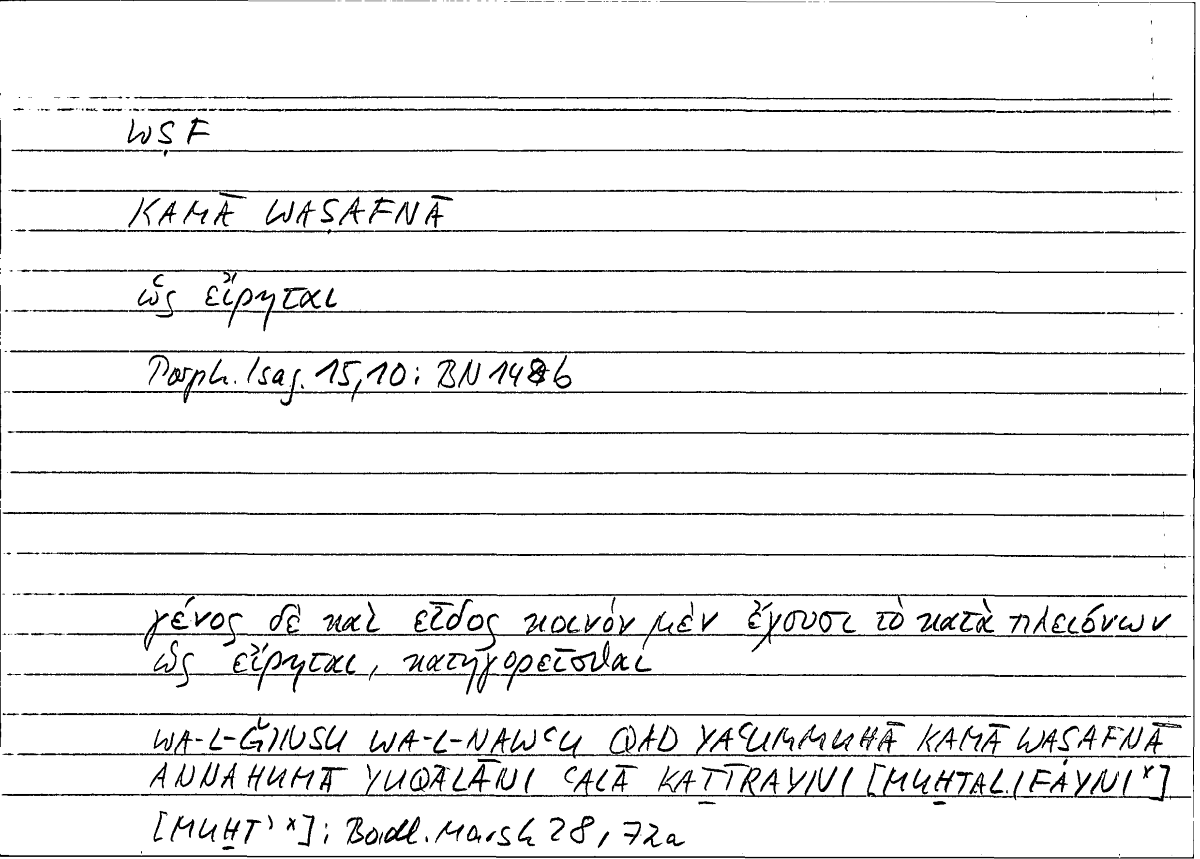 WṢF
KAMĀ WAṢAFNĀ
ὡς εἴρηται
Porph. Isag. 15,10: BN 148b
γένος δὲ καὶ εἶδος κοινὸν μὲν ἔχουσι τὸ κατὰ πλειόνων
ὡς εἴρηται, κατηγορεῖσθαι
WA-L-ǦINSU WA-L-NAWʿU QAD YAʿUMMUHĀ KAMĀ WAṢAFNĀ
ANNAHUMĀ YUQĀLĀNI ʿALĀ KAṮĪRAYNI [MUḪTALIFAYNI ˣ]
[MUḪT' ˣ]: Bodl. Marsh 28, 72a